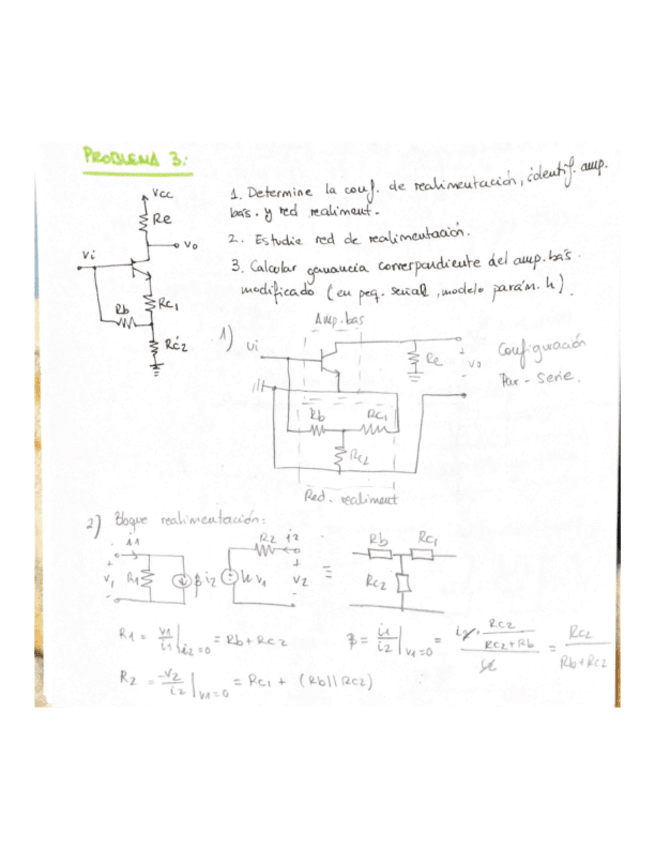 PROBLEMA 3:
Vcc
Re
Vo
Vi
Rb
Rc1
Rc2
1. Determine la conf. de realimentación, identif. amp.
bás. y red realiment.
2. Estudie red de realimentación.
3. Calcular ganancia correspondiente del amp. bás.
modificado (en peq. señal, modelo parám. h).
1)
Amp. bas
Vi
Re
Vo
Configuración
Par - Serie.
Rb
Rc1
Rc2
Red. realiment
2) Bloque realimentación:
i1
R2
i2
V1
R1
β i2
V1
V2
≡
Rb
Rc1
Rc2
R1 = V1/i1 | i2=0 = Rb + Rc2
β = i1/i2 | V1=0 = i2 · Rc2/(Rc2+Rb) / i2 = Rc2/(Rb+Rc2)
R2 = -V2/i2 | V1=0 = Rc1 + (Rb||Rc2)